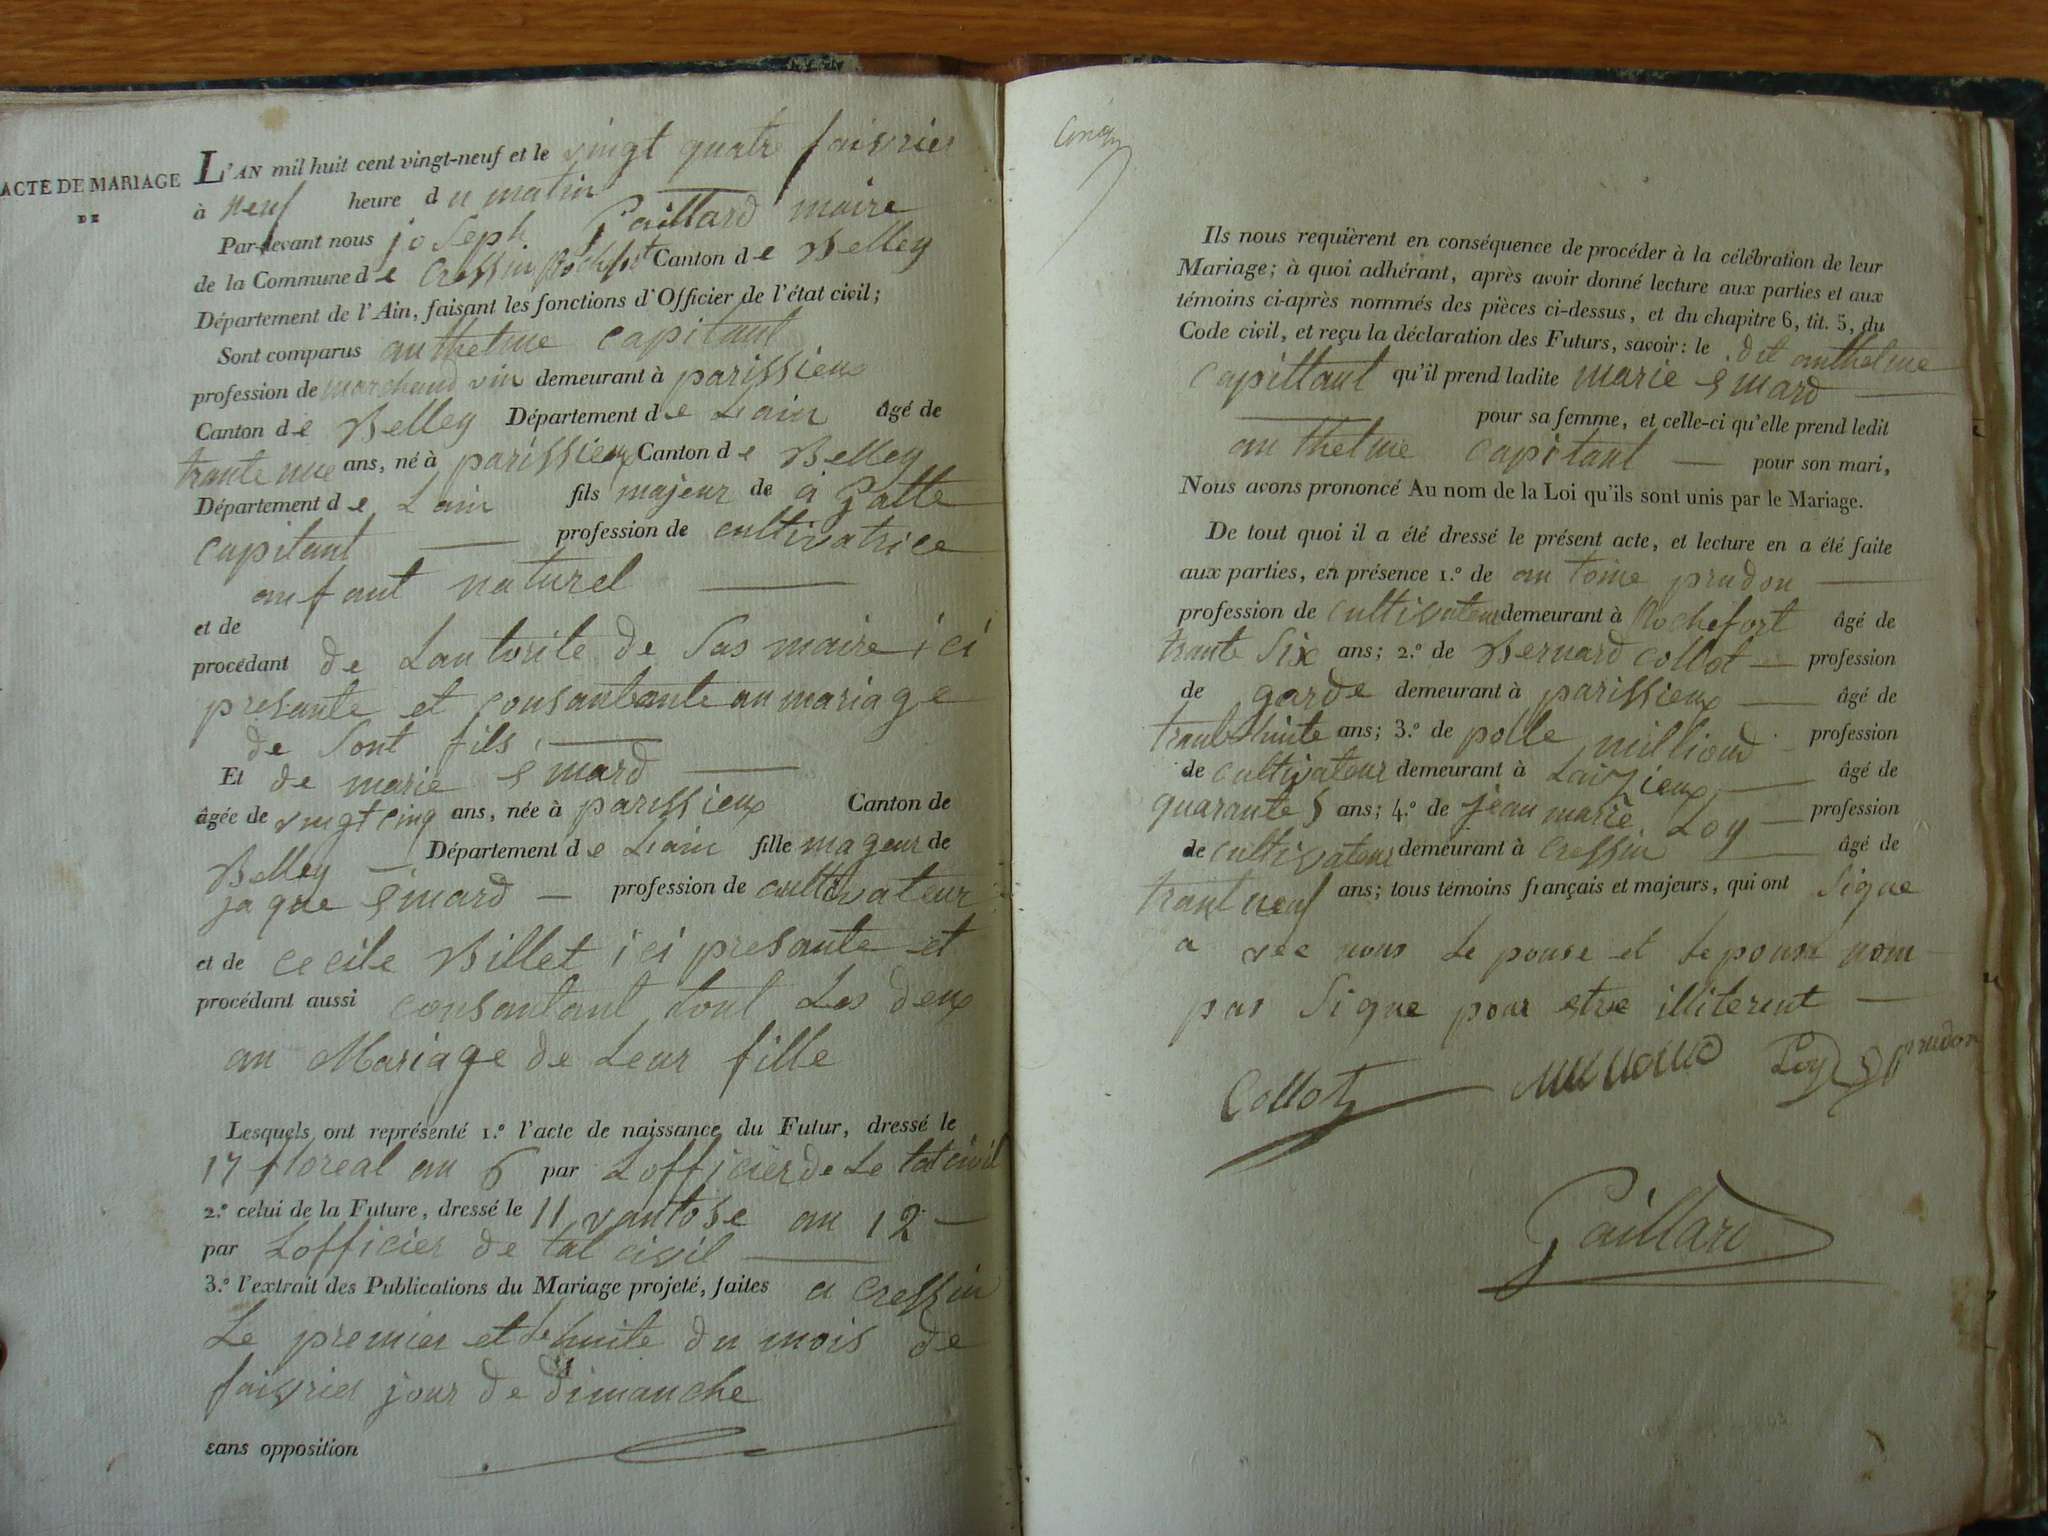 ACTE DE MARIAGE
DE
L'AN mil huit cent vingt-neuf et le vingt quatre faivrier
à neuf heure du matin
Par-devant nous joseph Gaillard maire
de la Commune de Cressin Rochefort Canton de Belley
Département de l'Ain, faisant les fonctions d'Officier de l'état civil;
Sont comparus anthelme capitant
profession de marchand vin demeurant à parissieux
Canton de Belley Département de Lain âgé de
trante une ans, né à parissieux Canton de Belley
Département de Lain fils majeur de a gatte
capitant — profession de cultivatrice
anfant naturel —
et de
procédant de Lautorite de Sas maire ici
presante et consantante au mariage
de Sont fils, —
Et de marie emard —
âgée de vingt cinq ans, née à parissieux Canton de
Belley — Département de Lain fille mageur de
jaque emard — profession de cultivateur
et de cecile Billet ici presante et
procédant aussi consantant tout Les deux
au Mariage de Leur fille
Lesquels ont représenté 1.º l'acte de naissance du Futur, dressé le
17 floreal an 6 par Lofficier de Le tat civil
2.º celui de la Future, dressé le 11 vantose an 12 —
par Lofficier de tat civil —
3.º l'extrait des Publications du Mariage projeté, faites a Cressin
Le premier et Le huite du mois de
faivrier jour de dimanche
sans opposition
Ils nous requièrent en conséquence de procéder à la célébration de leur
Mariage; à quoi adhérant, après avoir donné lecture aux parties et aux
témoins ci-après nommés des pièces ci-dessus, et du chapitre 6, tit. 5, du
Code civil, et reçu la déclaration des Futurs, savoir: le dit anthelme
capittant qu'il prend ladite marie emard —
— pour sa femme, et celle-ci qu'elle prend ledit
anthelme capitant — pour son mari,
Nous avons prononcé Au nom de la Loi qu'ils sont unis par le Mariage.
De tout quoi il a été dressé le présent acte, et lecture en a été faite
aux parties, en présence 1.º de antoine prudon —
profession de cultivateur demeurant à Rochefort âgé de
trante Six ans; 2.º de Bernard Collot — profession
de garde demeurant à parissieux — âgé de
trant huite ans; 3.º de polle milliond profession
de cultivateur demeurant à Laizieux — âgé de
quarante 5 ans; 4.º de jean marie Loy — profession
de cultivateur demeurant à Cressin — âgé de
trant neuf ans; tous témoins français et majeurs, qui ont Signe
a vec nous Le pouse et Le pouse nom
pas Signe pour estre illiterent —
Collot Loy prudon
Gaillard